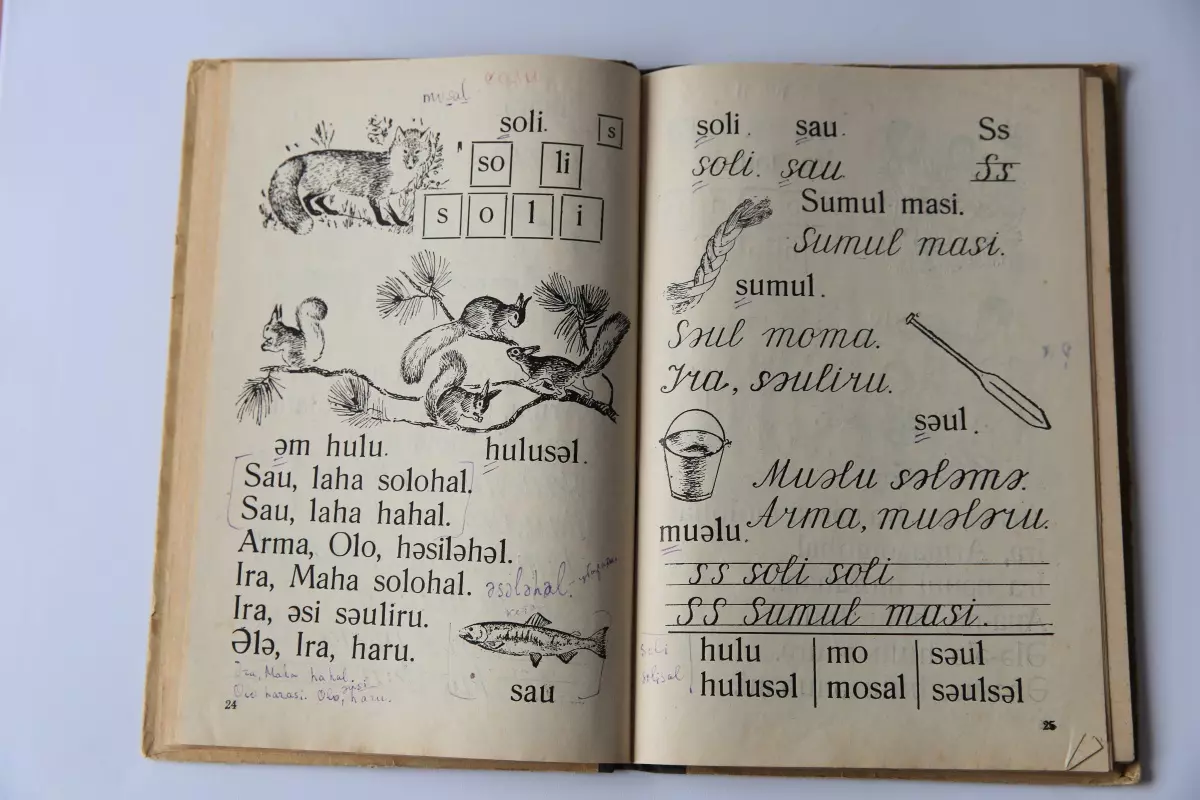 musal
soli.
s
so li
s o l i
əm hulu. hulusəl.
Sau, laha solohal.
Sau, laha hahal.
Arma, Olo, həsiləhəl.
Ira, Maha solohal.
əsələhəl.
Ira, əsi səuliru.
Ələ, Ira, haru.
Ira, Maha hahal.
Olo harasi. Olo, haru.
sau
24
soli. sau. Ss
soli. sau. Ss
Sumul masi.
Sumul masi.
sumul.
Səul moma.
Ira, səuliru.
səul.
Muəlu sələmə.
Arma, muələru.
muəlu.
ss soli soli
SS Sumul masi.
soli
solisal
hulu mo səul
hulusəl mosal səulsəl
25